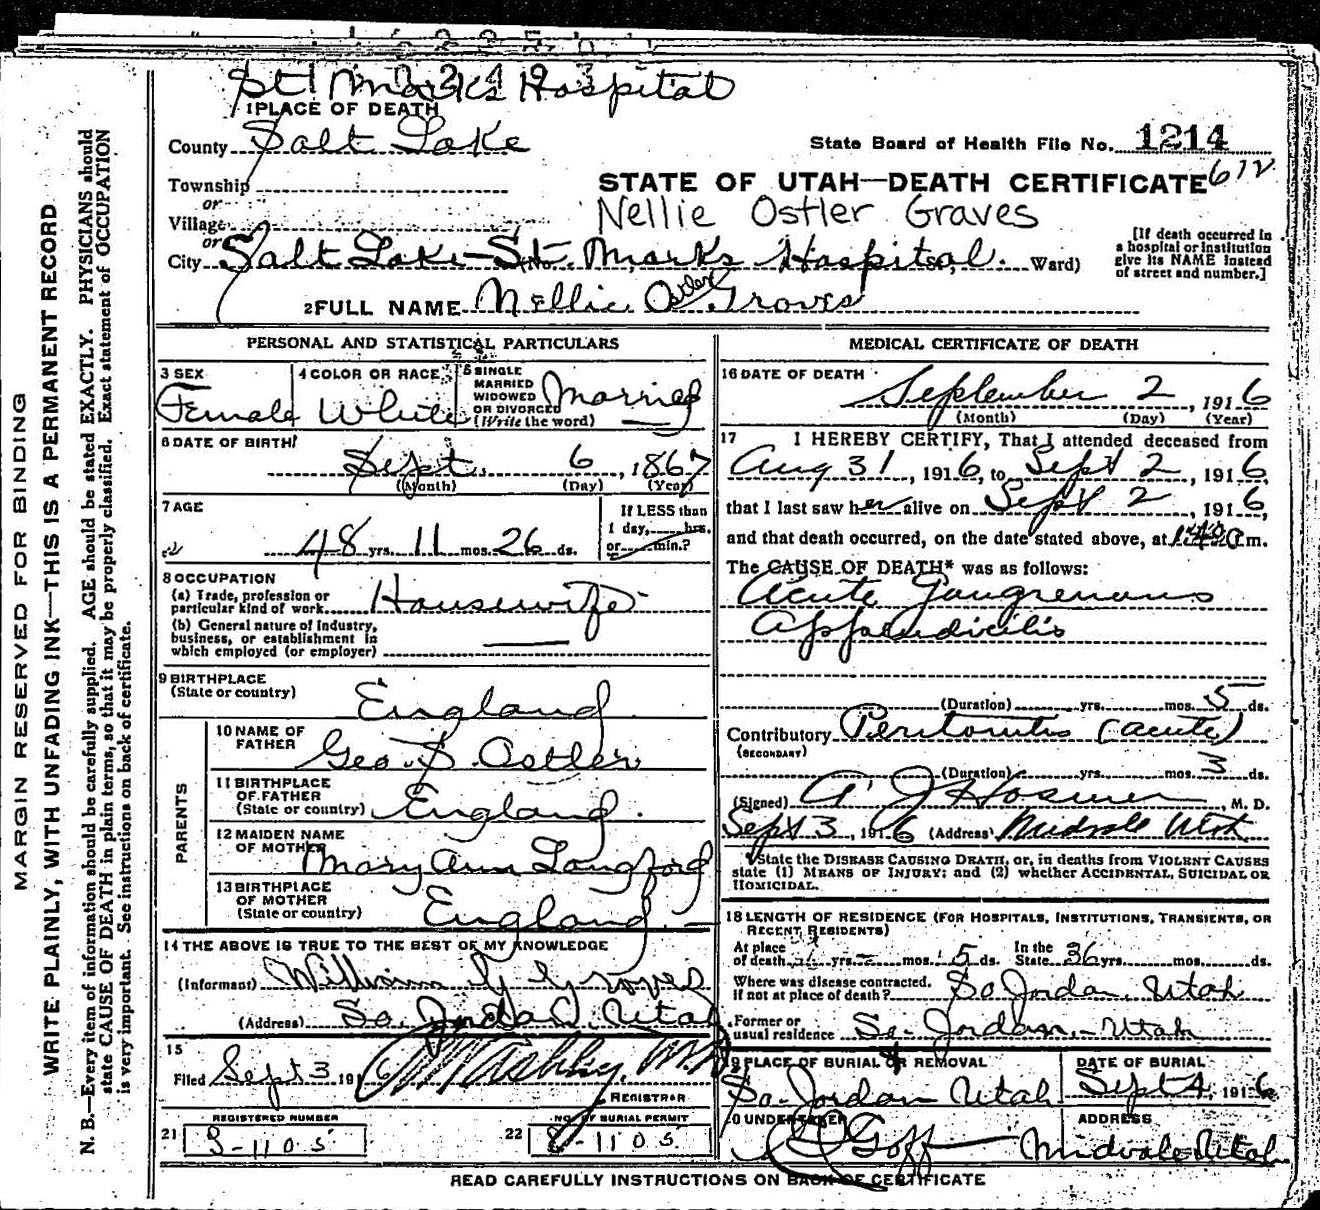 St Marks Hospital
1 PLACE OF DEATH
County Salt Lake
State Board of Health File No. 1214
Township
or
STATE OF UTAH—DEATH CERTIFICATE 612
Village
Nellie Ostler Graves
or
City Salt Lake - St. Marks Hospital. Ward)
[If death occurred in
a hospital or institution
give its NAME instead
of street and number.]
2 FULL NAME Nellie Ostler Groves
MARGIN RESERVED FOR BINDING
WRITE PLAINLY, WITH UNFADING INK—THIS IS A PERMANENT RECORD
N. B.—Every item of information should be carefully supplied. AGE should be stated EXACTLY. PHYSICIANS should
state CAUSE OF DEATH in plain terms, so that it may be properly classified. Exact statement of OCCUPATION
is very important. See instructions on back of certificate.
PERSONAL AND STATISTICAL PARTICULARS
3 SEX
Female
4 COLOR OR RACE
White
5 SINGLE
MARRIED
WIDOWED
OR DIVORCED
(Write the word)
Married
6 DATE OF BIRTH
Sept. 6, 1867
(Month) (Day) (Year)
7 AGE
48 yrs. 11 mos. 26 ds.
If LESS than
1 day, hrs.
or min.?
8 OCCUPATION
(a) Trade, profession or
particular kind of work Housewife
(b) General nature of industry,
business, or establishment in
which employed (or employer)
9 BIRTHPLACE
(State or country) England
PARENTS
10 NAME OF
FATHER Geo. S. Ostler
11 BIRTHPLACE
OF FATHER
(State or country) England.
12 MAIDEN NAME
OF MOTHER Mary Ann Langford
13 BIRTHPLACE
OF MOTHER
(State or country) England.
14 THE ABOVE IS TRUE TO THE BEST OF MY KNOWLEDGE
(Informant) William G Groves
(Address) So. Jordan. Utah
15
Filed Sept 3 1916 Ashby, M.D.
REGISTRAR
REGISTERED NUMBER
21 S-1105
NO. OF BURIAL PERMIT
22 S-1105
MEDICAL CERTIFICATE OF DEATH
16 DATE OF DEATH
September 2, 1916
(Month) (Day) (Year)
17 I HEREBY CERTIFY, That I attended deceased from
Aug 31, 1916, to Sept 2, 1916,
that I last saw her alive on Sept 2, 1916,
and that death occurred, on the date stated above, at m.
The CAUSE OF DEATH* was as follows:
Acute Gangrenous
Appendicitis
(Duration) yrs. mos. 5 ds.
Contributory Peritonitis (acute)
(SECONDARY)
(Duration) yrs. mos. 3 ds.
(Signed) A. J. Hosmer, M. D.
Sept 3, 1916 (Address) Midvale Utah
*State the DISEASE CAUSING DEATH, or, in deaths from VIOLENT CAUSES
state (1) MEANS OF INJURY; and (2) whether ACCIDENTAL, SUICIDAL OR
HOMICIDAL.
18 LENGTH OF RESIDENCE (FOR HOSPITALS, INSTITUTIONS, TRANSIENTS, OR
RECENT RESIDENTS)
At place
of death yrs. mos. 5 ds. In the
State 36 yrs. mos. ds.
Where was disease contracted.
if not at place of death? So Jordan, Utah
Former or
usual residence So. Jordan, - Utah
19 PLACE OF BURIAL OR REMOVAL
So. Jordan Utah
DATE OF BURIAL
Sept 4, 1916
20 UNDERTAKER
Goff
ADDRESS
Midvale Utah
READ CAREFULLY INSTRUCTIONS ON BACK OF CERTIFICATE